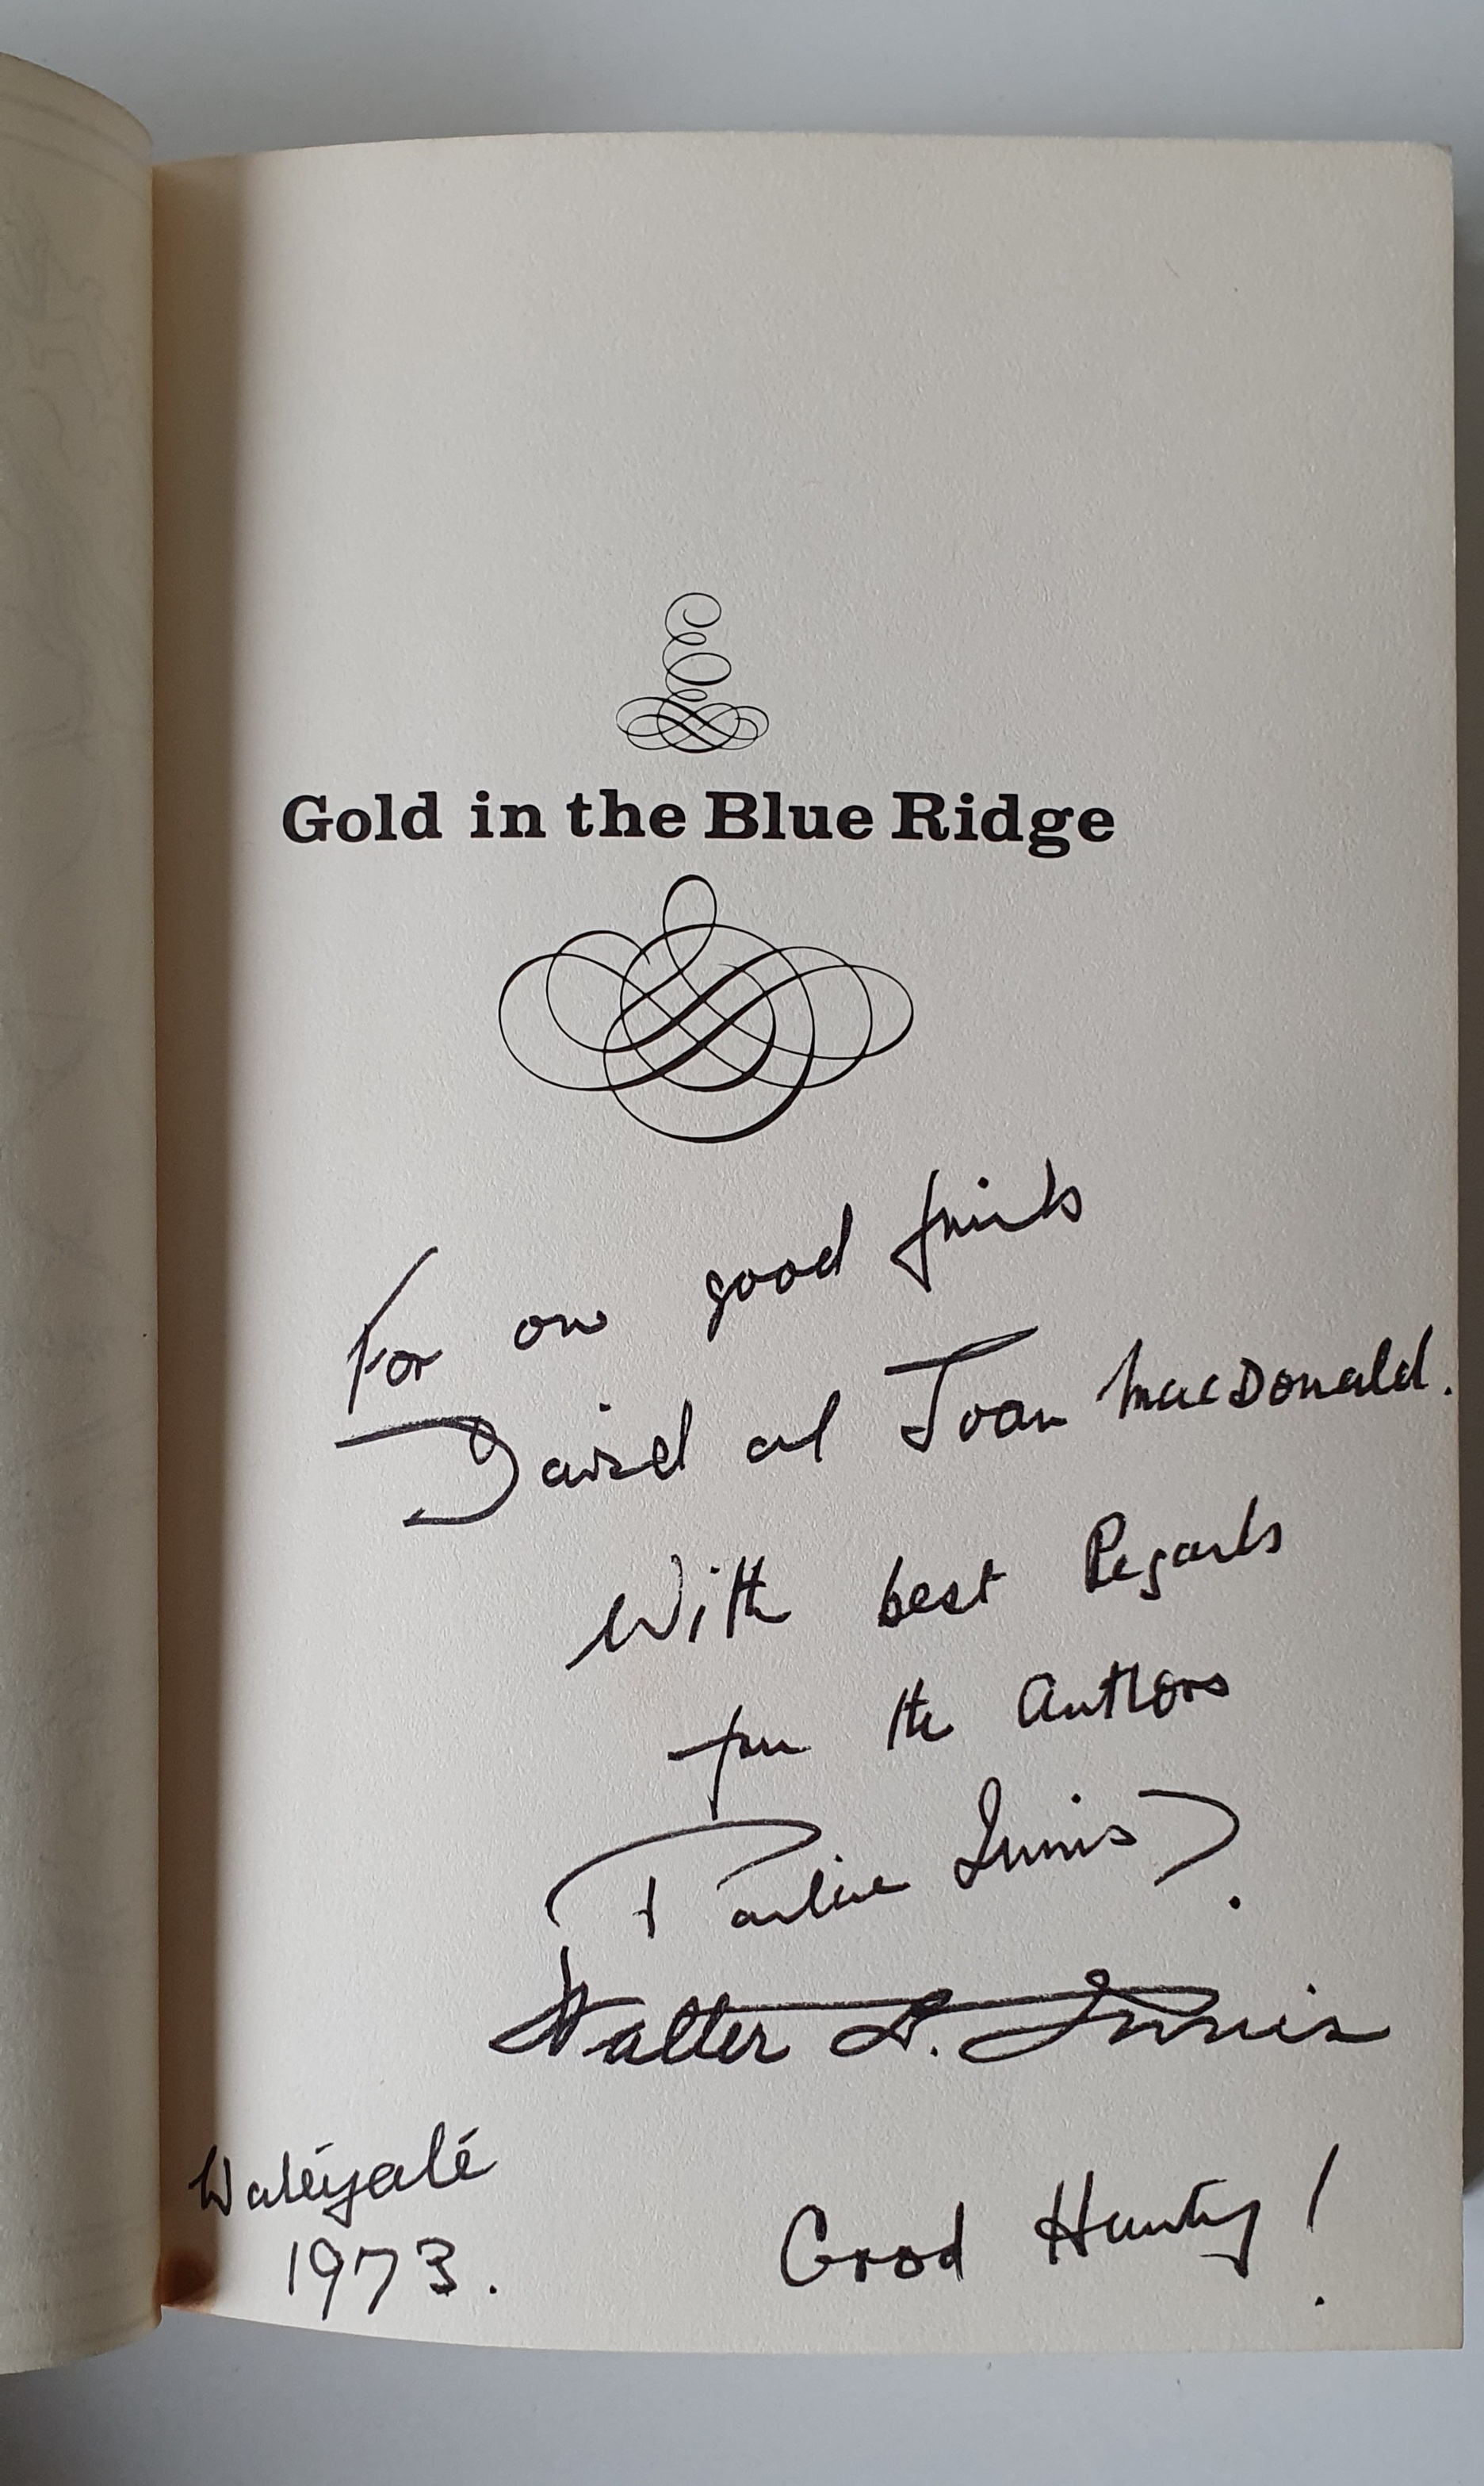 Gold in the Blue Ridge
For our good friends
David and Joan MacDonald.
With best Regards
from the Authors
Pauline Innis
Walter D. Innis
1973.
Good Hunting!